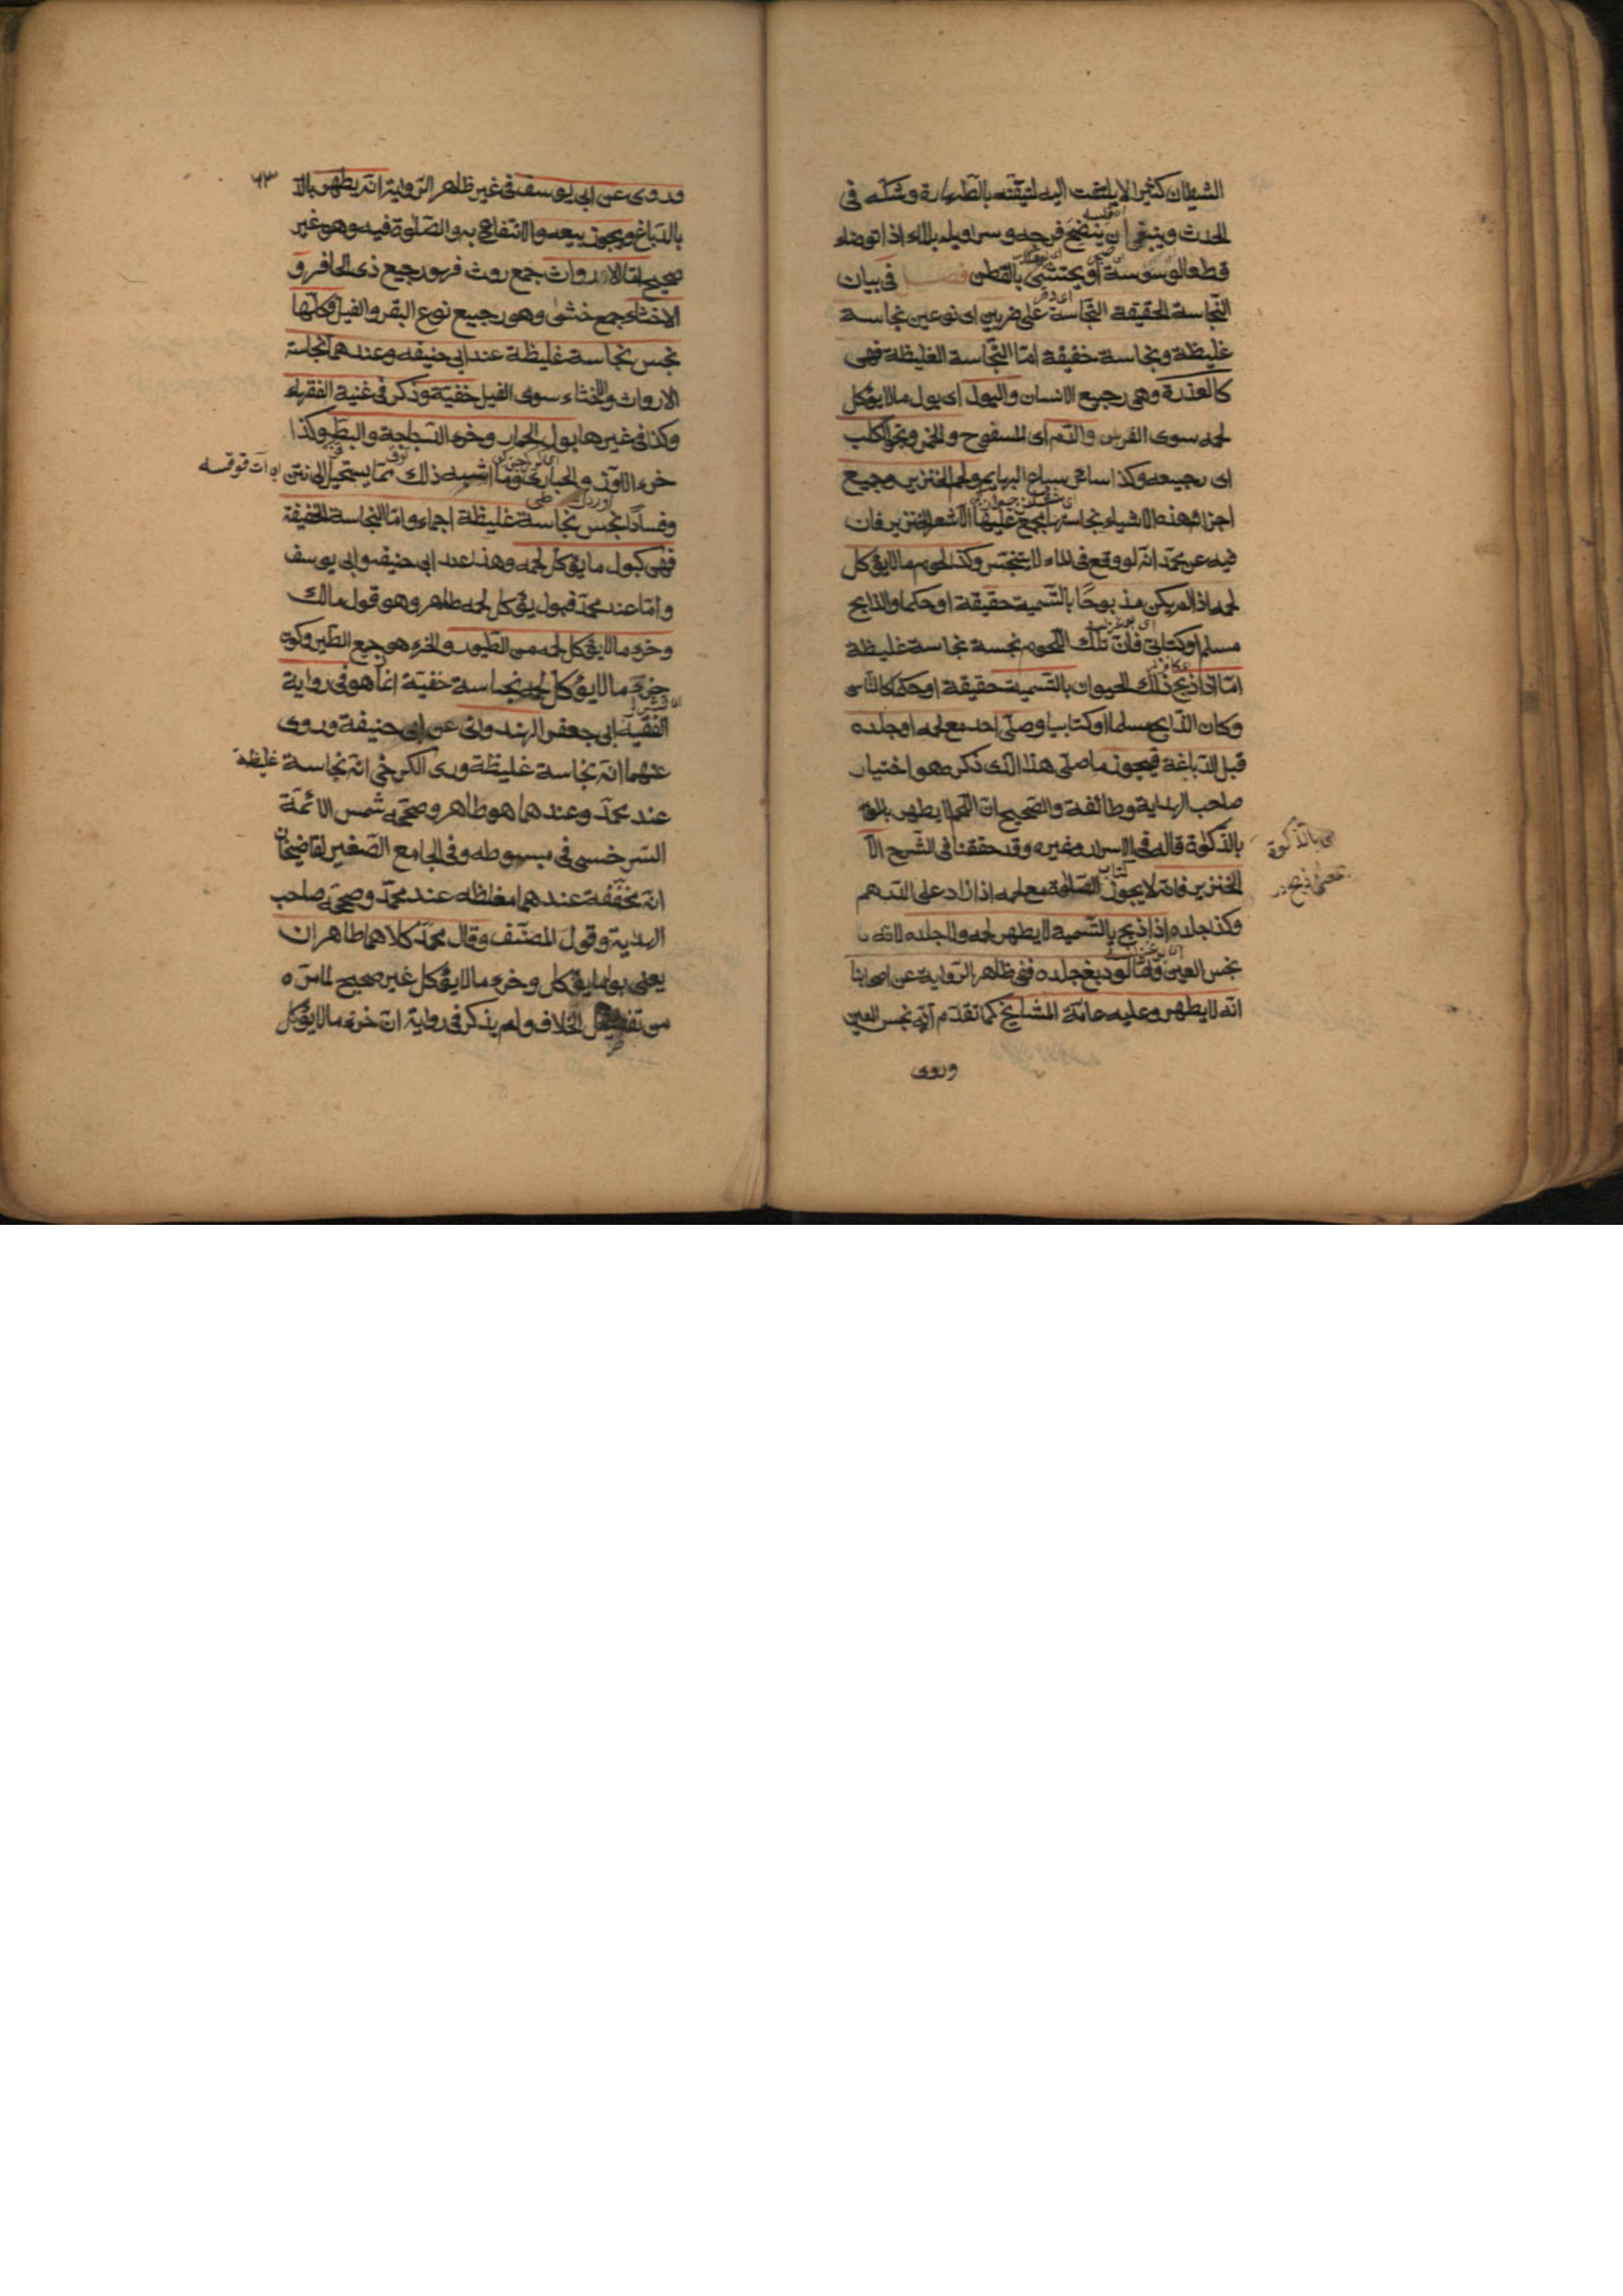 الشيطان كثيرا لا يلتفت اليه لتيقنه بالطهارة وشكه فى
الحدث وينبغى ان ينضح فرجه وسراويله بالماء اذا توضاء
قطعا لوسوسة او يحتشى بالقطن فصل فى بيان
النجاسة الحقيقة النجاسة على ضربين اى نوعين نجاسة
غليظة ونجاسة خفيفة امّا النّجاسة الغليظة فهى
كالعذرة وهى رجيع الانسان والبول اى بول ما لا يؤكل
لحمه سوى الفرس والدّم اى المسفوح والخمر ونجو الكلب
اى رجيعه وكذا سائر سباع البهايم ولحم الخنزير وجميع
اجزائه هذه الاشياء نجاستها مجمع عليها الّا شعر الخنزير فان
فيه عن محمّد انّه لو وقع فى الماء لا يتنجّس وكذا لحوم ما لا يؤكل
لحمه اذا لم يكن مذبوحًا بالتّسمية حقيقة او حكما والذابح
مسلم او كتابىّ فانّ تلك اللّحوم نجسة نجاسة غليظة
امّا اذا ذبح ذلك الحيوان بالتّسمية حقيقة او حكما كالنّاسى
وكان الذّابح مسلما او كتابيا وصلّى احد مع لحمه او جلده
قبل الدّباغة فيجوز ما صلّى هذا الذى ذكره هو اختيار
صاحب الهداية وطائفة والصّحيح انّ اللّحم لا يطهر
بالذكوة قاله فى الاسرار وغيره وقد حققنا فى الشّرح الّا
الخنزير فانه لا يجوز الصّلوة مع لحمه اذا زاد على الدّرهم
وكذا جلده اذا ذبح بالتّسمية لا يطهر لحمه ولا جلده لانّه
نجس العين وامّا لو دبغ جلده ففى ظاهر الرّواية عن اصحابنا
انّه لا يطهر وعليه عامّة المشايخ كما تقدّم انّه نجس العين
وروى
اى بالذكوة
٦٣
وروى عن ابى يوسف فى غير ظاهر الرّواية انّه يطهر بالد
بالدّباغ ويجوز بيعه والانتفاع به والصّلوة فيه وهو غير
صحيح امّا الارواث جمع روث فهو رجيع ذى الحافر و
الاخثاء جمع خثى وهو رجيع نوع البقر والفيل فكلّها
نجس نجاسة غليظة عند ابى حنيفه وعندهما نجاسة
الارواث والاخثاء سوى الفيل خفيفة وذكر فى غنية الفقهاء
وكذا فى غيرها بول الحمار وخرء الدّجاجة والبطّ وكذا
خرء الاوزّ والحبارى وما اشبه ذلك ممّا يستحيل الى نتن
وفساد نجس نجاسة غليظة اجماعا وامّا النجاسة الخفيفة
فهى كبول ما يؤكل لحمه وهذا عند ابى حنيفه وابى يوسف
وامّا عند محمّد فبول يؤكل لحمه طاهر وهو قول مالك
وخرء ما لا يؤكل لحمه من الطّيور والخرء هو رجيع الطّير وكون
خرء ما لا يؤكل لحمه نجاسة خفيفة انّما هو فى رواية
الفقيه ابى جعفر الهندوانى عن ابى حنيفة وروى
عنهما انّه نجاسة غليظة وروى الكرخى انّه نجاسة غليظة
عند محمّد وعندهما هو طاهر وصحّحه شمس الائمّة
السّرخسى فى مبسوطه وفى الجامع الصّغير لقاضيخان
انّه مخفّفة عندهما مغلظه عند محمّد وصحّحه صاحب
الهداية وقول المصنّف وقال محمّد كلاهما طاهران
يعنى بول ما يؤكل وخرء ما لا يؤكل غير صحيح لما مرّ
من تفصيل الخلاف ولم يذكر فى رواية انّ خرء ما لا يؤكل